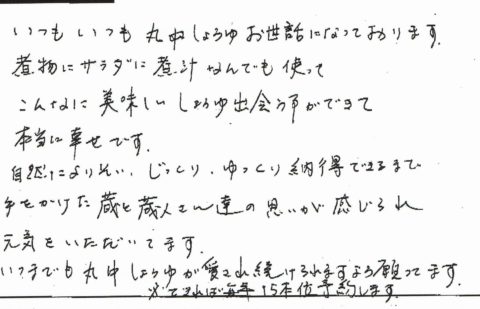 いつも いつも 丸中しょうゆ お世話になっております.
煮物に サラダに 煮汁 なんでも 使って
こんなに 美味しい しょうゆ 出会う事ができて
本当に 幸せです.
自然によりそい, じっくり, ゆっくり 納得できるまで
手をかけた 蔵と 蔵人さん達の 思いが 感じられ
元気を いただいてます.
いつまでも 丸中しょうゆが 愛され続けられますよう 願ってます.
できれば 毎年 15本位 予約します.